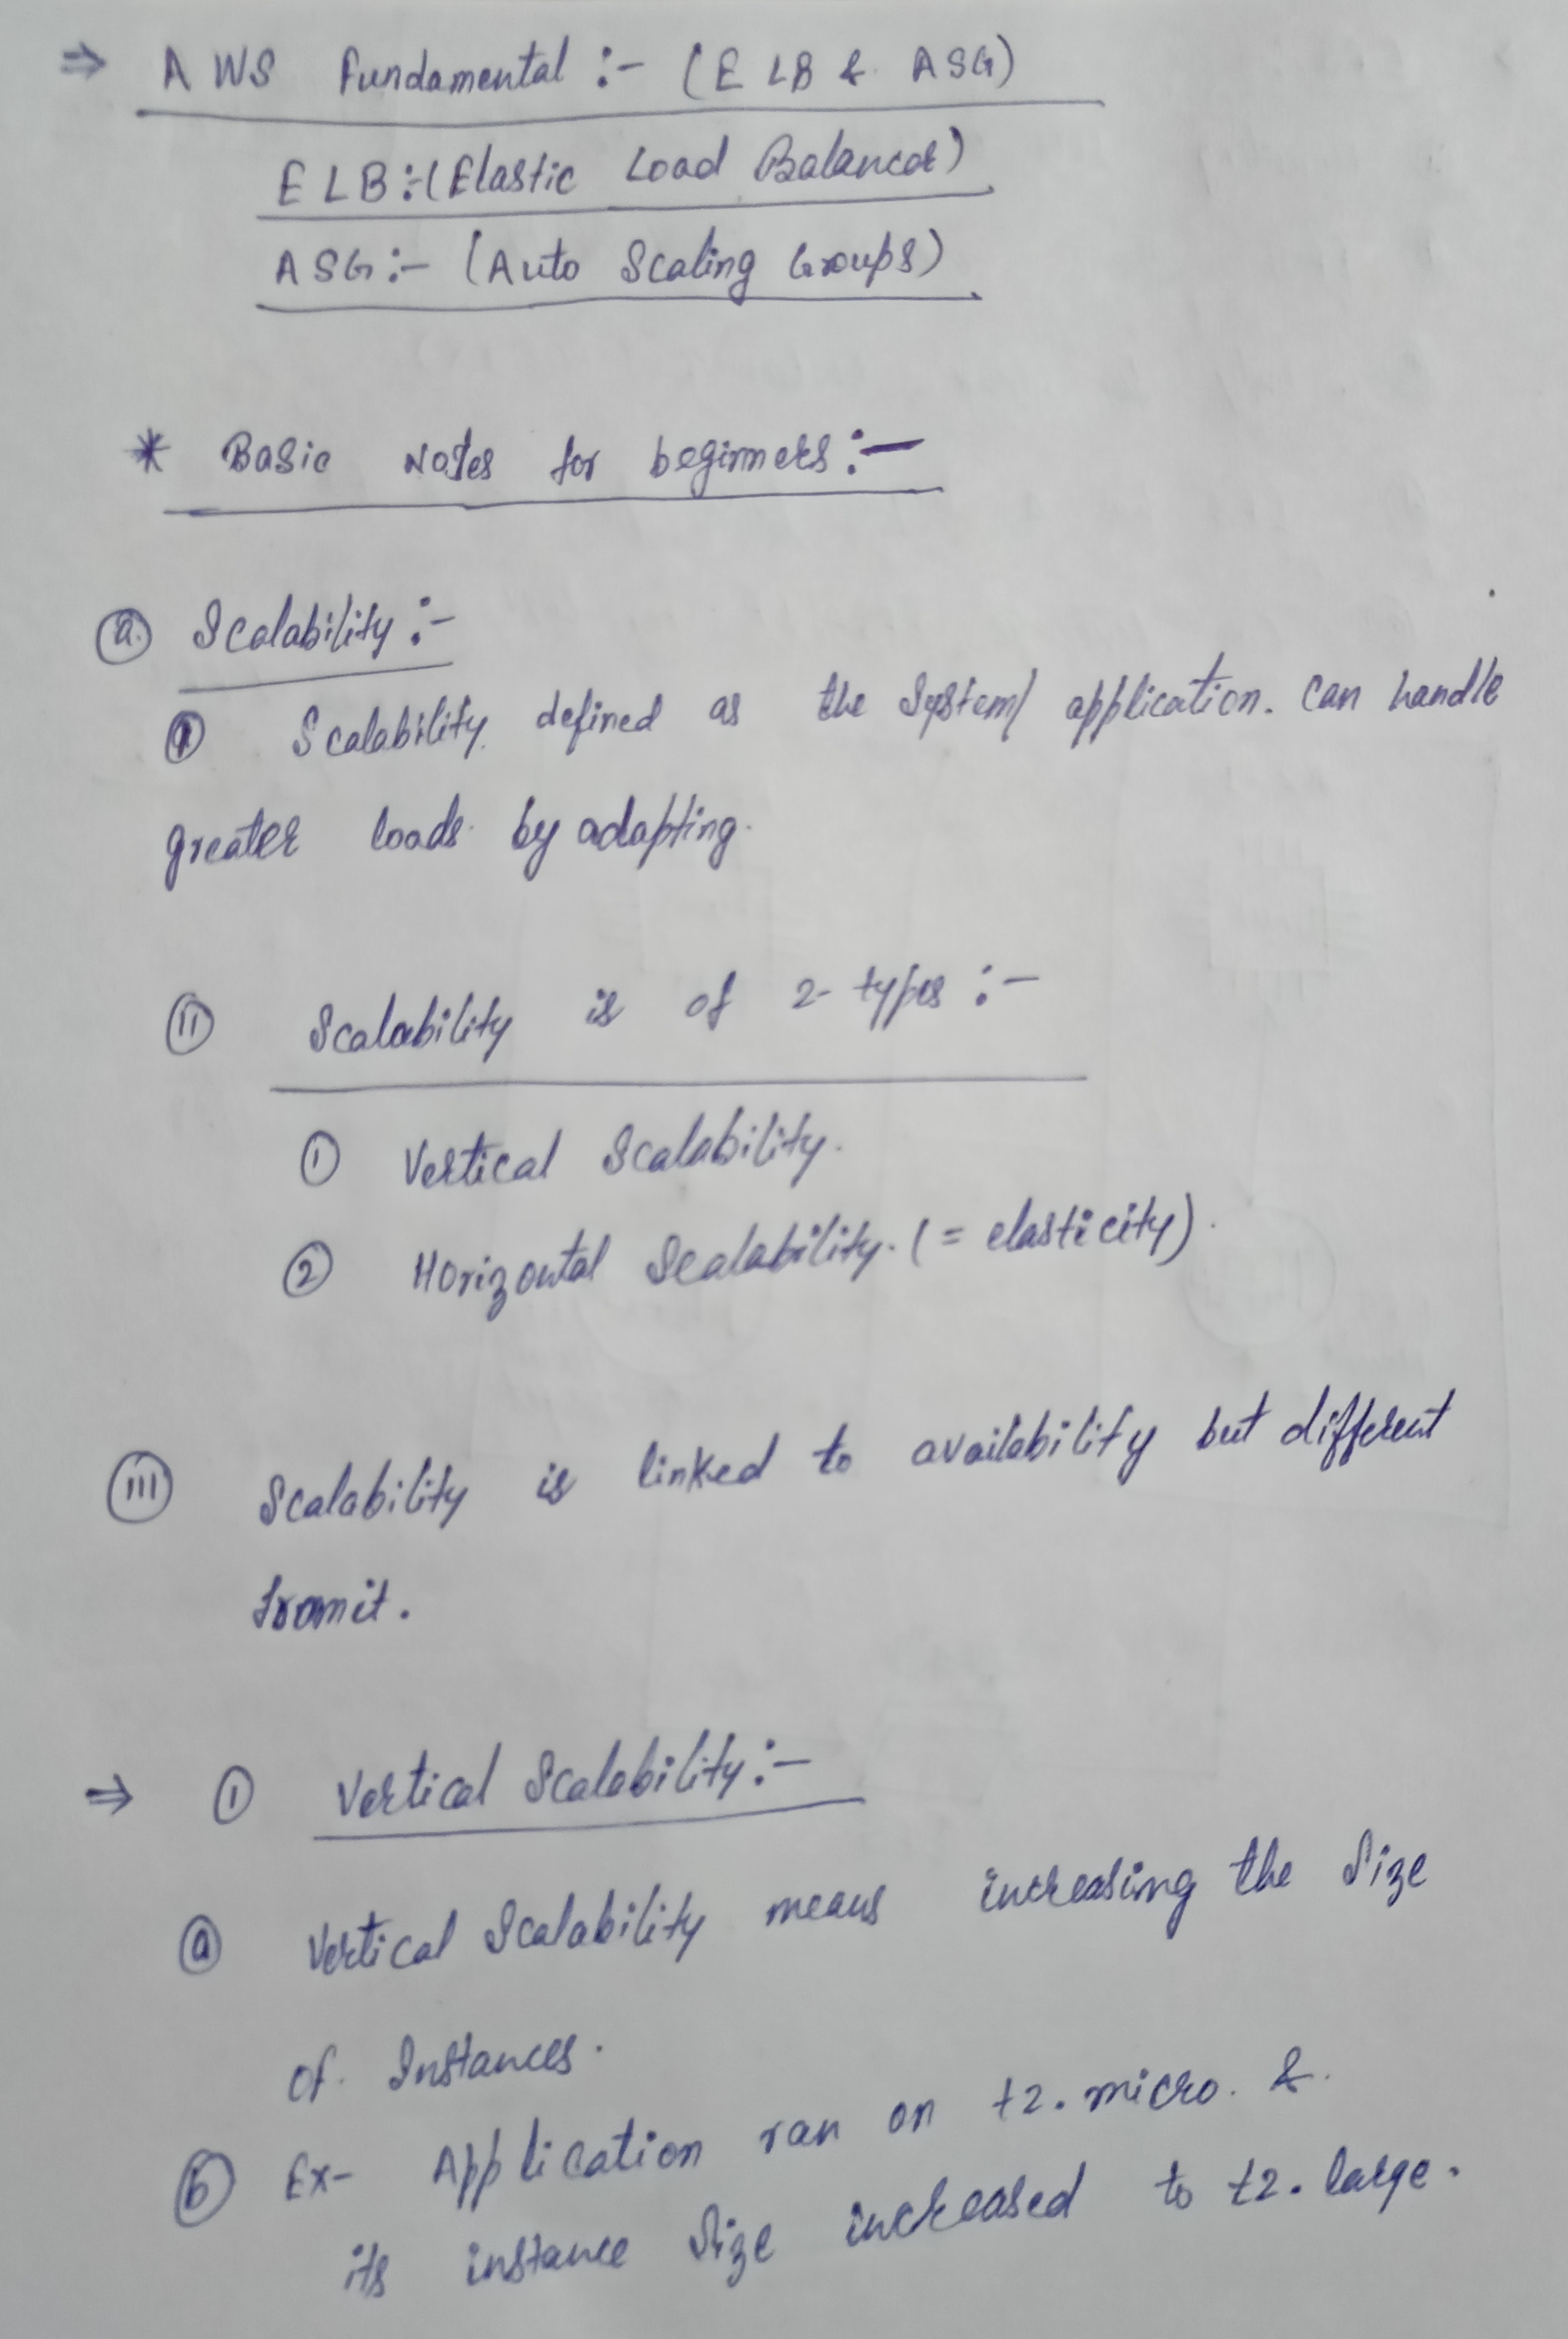 ⇒ AWS Fundamental :- (ELB & ASG)
ELB :- (Elastic Load Balancer)
ASG :- (Auto Scaling Groups)
* Basic Notes for beginners :-
(a) Scalability :-
(i) Scalability defined as the System/ application. Can handle
greater loads by adapting.
(ii) Scalability is of 2- types :-
(1) Vertical Scalability.
(2) Horizontal Scalability. (= elasticity).
(iii) Scalability is linked to availability but different
from it.
⇒ (1) Vertical Scalability :-
(a) Vertical Scalability means increasing the Size
of Instances.
(b) Ex- Application ran on t2.micro. &
its instance Size increased to t2.large.